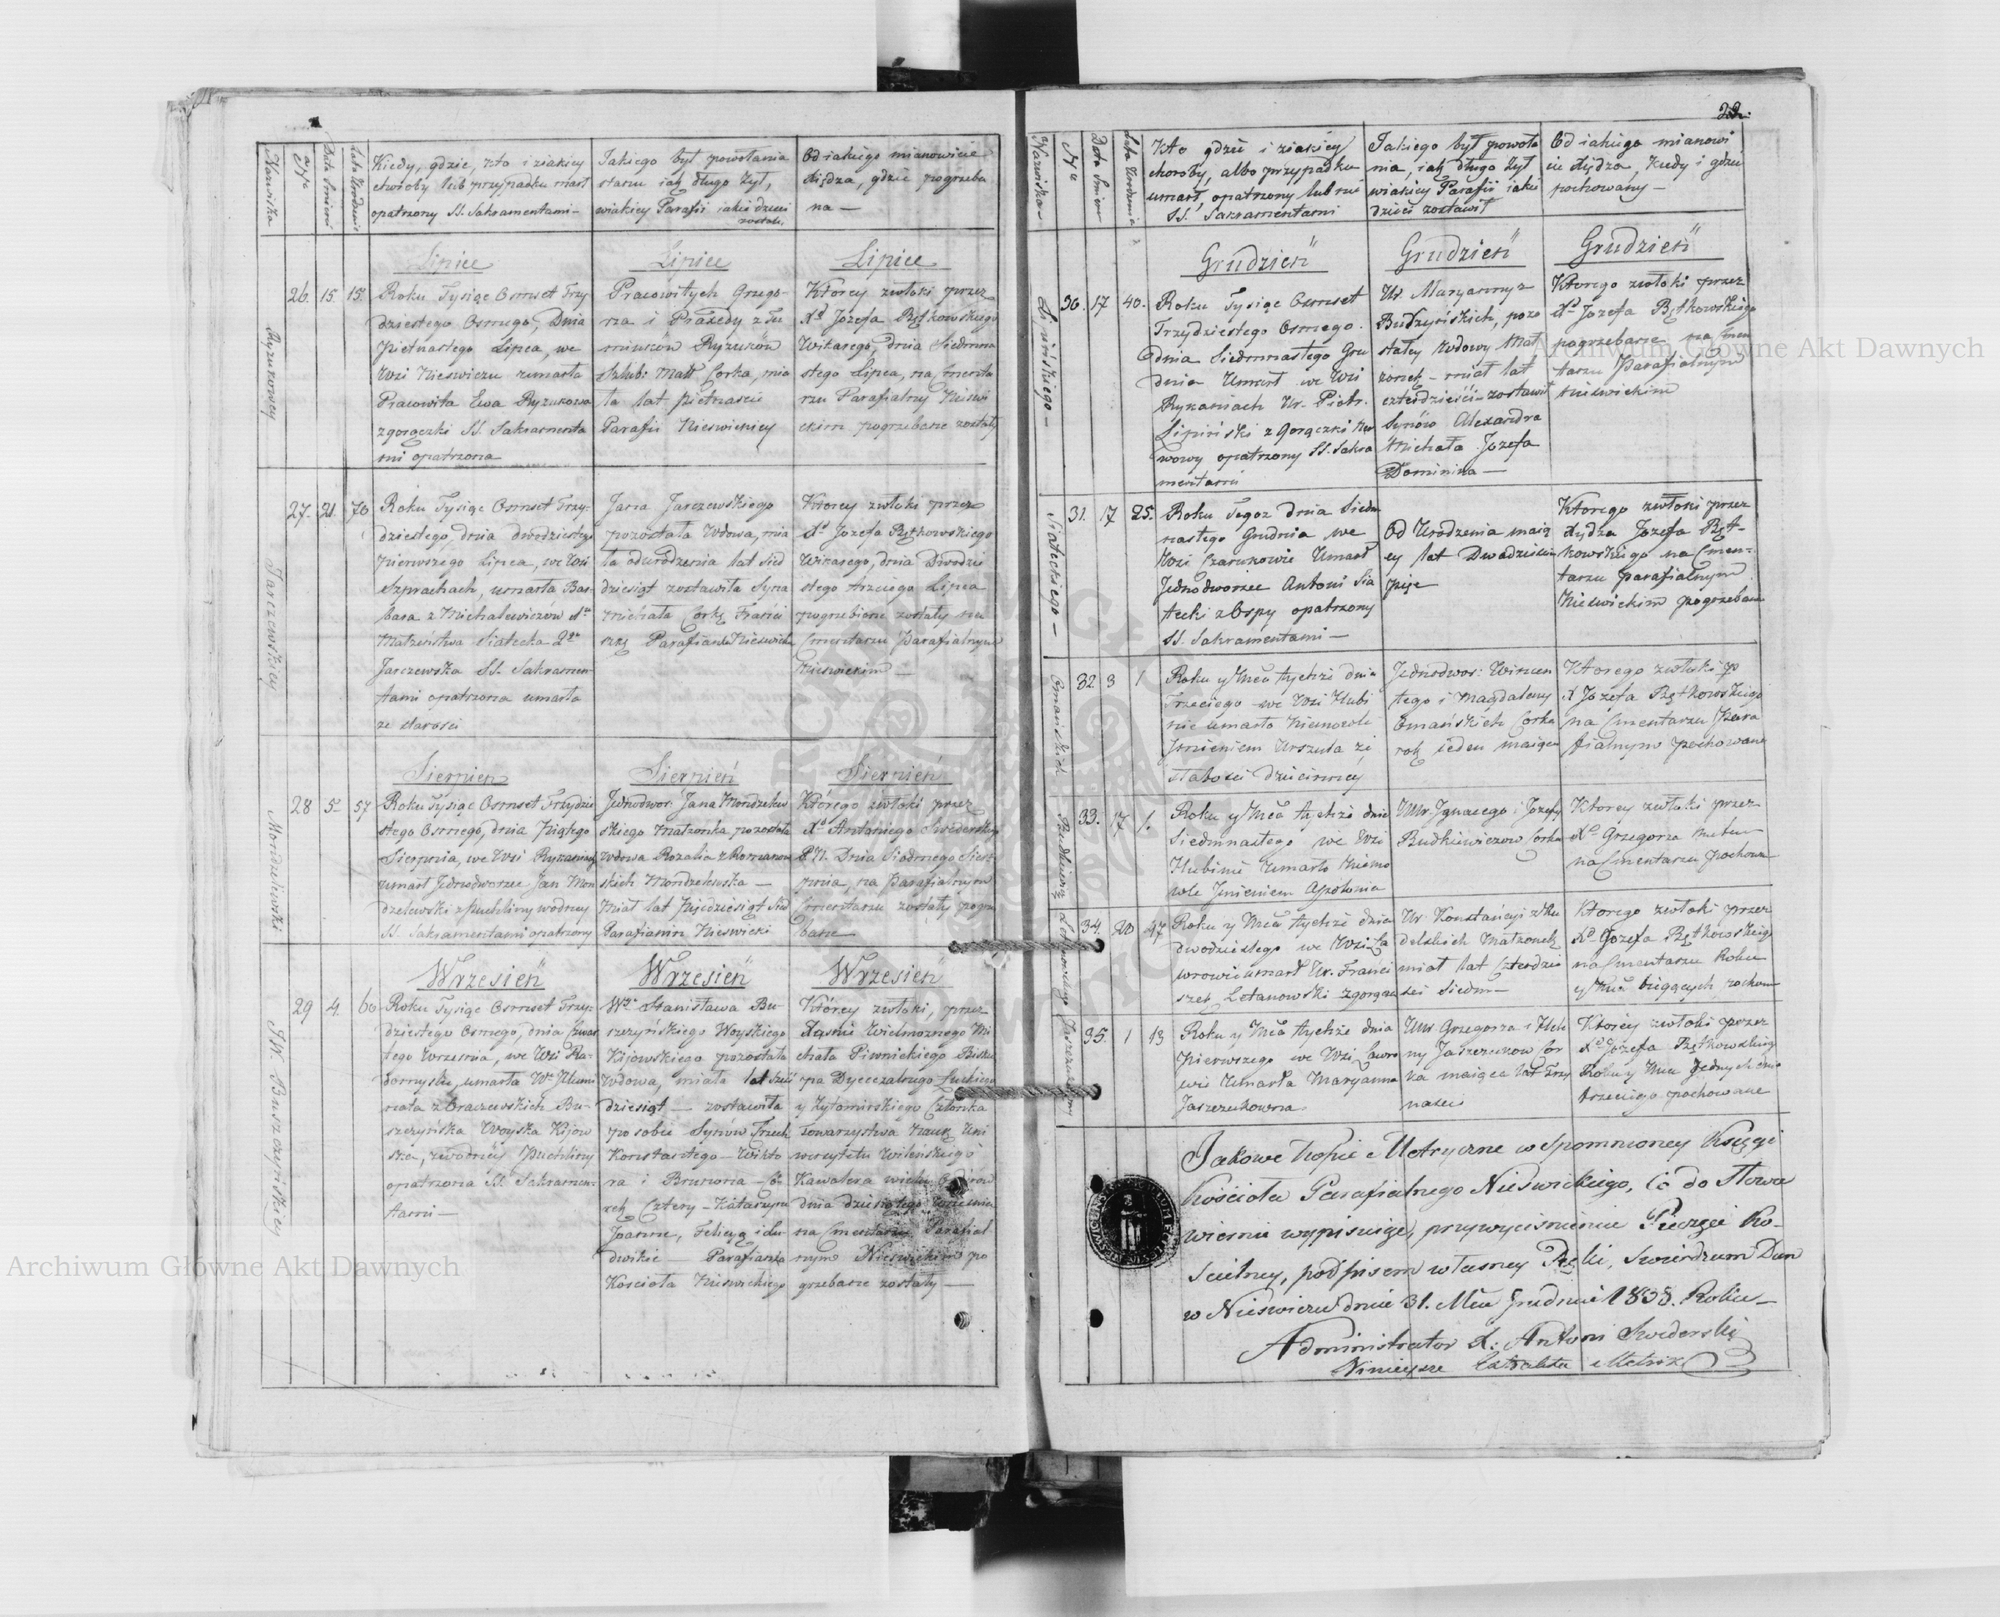 Kiedy, gdzie, kto i z iakiey
choroby lub przypadku marł
opatrzony SS. Sakramentami –
Jakiego był powołania
stanu iak długo żył,
w iakiey Parafii iakie dzieci
zostali
Od iakiego mianowicie
Xiędza, gdzie pogrzeba
na —
Nazwiska
Data Śmierci
Lipiec
26. 15. 15.
Ryzukowey
Roku Tysiąc Osmset Trzy
dziestego Osmego, Dnia
Pietnastego Lipca, we
Wsi Nieswiczu umarła
Pracowita Ewa Ryzukowa
z gorączki SS. Sakramenta
mi opatrzona
Lipiec
Pracowitych Grzego-
rza i Praxedy z
Ryzuków
Szlub: Małż Corka, mia
ła lat pietnascie
Parafii Nieswickiey
Lipiec
Ktorey zwłoki przez
Xa Józefa Rętkowskiego
Wikarego, dnia Siedmna
stego Lipca, na Cmenta
rzu Parafialny Nieświ
ckim pogrzebane zostały
27. 21. 70
Jarczewskiey
Roku Tysiąc Osmset Trzy-
dziestego, dnia dwudziestego
pierwszego Lipca, we Wsi
Szprachach, umarła Bar-
bara z Michalewiczów
Małżeństwa Siatecka 2go
Jarczewska SS. Sakramen-
tami opatrzona umarła
ze starości
Jana Jarczewskiego
pozostała Wdowa, mia
ła od urodzenia lat sied
dziesiąt zostawiła Syna
Michała Corkę Franci
szkę Parafianka Nieswick
Ktorey zwłoki przez
Xa Józefa Rętkowskiego
Wikarego, dnia Dwudzie
stego trzeciego Lipca
pogrzebione zostały na
Cmentarzu Parafialnym
Nieswickim —
Sierpień
28 5. 57
Mondzelewski
Roku Tysiąc Osmset Trzydzie
stego Osmego, dnia Piątego
Sierpnia, we Wsi Rykaniach
umarł Jednodworzec Jan Mon
dzelewski z puchliny wodney
SS. Sakramentami opatrzony
Sierpień
Jednodwor: Jana Mondzelew
skiego małżonka pozostała
wdowa Rozalia z Romanow
skich Mondzelewska —
Miał lat Pięćdziesiąt Sied
Parafianin Nieswicki
Sierpień
Którego zwłoki przez
Xa Antoniego Swiderskiego
Dnia Siódmego Sier-
pnia, na Parafialnym
Cmentarzu zostały pogrze
bane
Wrzesień
29 4. 60
JW Buszczyńskiey
Roku Tysiąc Osmset Trzy-
dziestego Osmego, dnia Czwar
tego Września, we Wsi Ra-
domyślu, umarła Wa
Bu-
szczyńska Woyska Kijow
ska, z wodney Puchliny
opatrzona SS. Sakramen-
tami —
Wrzesień
Wo Stanisława Bu-
szczyńskiego Woyskiego
Kijowskiego pozostała
Wdowa, miała lat sześć
dziesiąt — zostawiła
po sobie Synów Trzech
Konstantego – Wikto
ra i Brunona – Có
rek Cztery – Katarzynę
Joannę, Felicyę i Lu
dwikie — Parafianka
Kościoła Nieswickiego
Wrzesień
Którey zwłoki, przez
Jaśnie Wielmożnego Mi
chała Piwnickiego Bisku
pa Dyecezalnego Łuckiego
y Żytomirskiego Członka
Towarzystwa Nauk Uni
wersytetu Wileńskiego
Kawalera wielu Orderów
dnia dziesiątego Września
na Cmentarzu Parafial-
nym Nieswickim po
grzebane zostały —
Nazwiska
Nro
Data Śmier
Lata Urodzenia
Kto gdzie i z iakiey
choroby, albo przypadku
umarł, opatrzony lub nie
SS. Sakramentami
Jakiego był powoła
nia, iak długo żył
w iakiey Parafii iakie
dzieci zostawił
Od iakiego mianowi
cie Xiędza, kiedy i gdzie
pochowany —
Grudzień
30. 17 40.
Lipińskiego —
Roku Tysiąc Osmset
Trzydziestego Osmego.
dnia Siedmnastego Gru
dnia Umarł we Wsi
Rykaniach Ur. Piotr
Lipiński z Gorączki Ner
wowy opatrzony SS. Sakra
mentami
Grudzień
Ur Maryanny z
Budzyńskich, pozo
stałey Wdowy Mał
żonek – miał lat
czterdzieści – zostawił
Synów Alexandra
Michała Jozefa
Dominika —
Grudzień
Ktorego zwłoki przez
Xa Jozefa Rętkowskiego
pogrzebane na Cmen
tarzu Parafialnym
Nieswickim
31. 17 25.
Siateckiego —
Roku Tegoż dnia Siedm
nastego Grudnia we
Wsi Czarukowie Umarł
Jednodworzec Antoni Sia
tecki z Ospy opatrzony
SS. Sakramentami —
Od Urodzenia maią
cy lat Dwadzieścia
pięc
Ktorego zwłoki przez
Xiędza Jozefa Ręt-
kowskiego na Cmen-
tarzu parafialnym
Nieświckim pogrzebane
32. 3 1
Omańskich
Roku y Mca tychże dnia
Trzeciego we Wsi Hubi
nie umarło Niemowle
Imieniem Urszula ze
słabości dziecinney
Jednodwor: Wincen
tego i Magdaleny
Omańskich Corka
rok ieden maiąca
Ktorego zwłoki p
X Jozefa Rętkowskiego
na Cmentarzu Para
fialnym pochowane
33. 17 1.
Budkiewicz
Roku y Mca tychże dnia
Siedmnastego we Wsi
Hubinie Umarło Niemo
wle Imieniem Apolonia
Ignacego i Jozefy
Budkiewiczow Corka
Ktorey zwłoki przez
Xa Grzegorza
na Cmentarzu pochowa
34. 20 47
Roku y Mca tychże dnia
dwudziestego we Wsi Ła
wrowie umarł Ur. Franci
szek Letanowski z gorącz
Ur Konstancyi z
delskich Małżonek
miał lat Czterdzie
sci Siedm —
Ktorego zwłoki przez
Xa Jozefa Rętkowskiego
na Cmentarzu Roku
y Mca bieżących pochow
35. 1 13
Roku y Mca tychże dnia
Pierwszego we Wsi Ławro
wie Umarła Maryanna
Jaszczukowna
Grzegorza i Hele
ny Jaszczukow Cor
ka maiąca lat Trzy
nascie
Ktorey zwłoki przez
Xa Jozefa Rętkowskiego
Roku y Mca Jednych dnia
trzeciego pochowane
Jakowe Kopie Metryczne w spomnioney Księgi
Kościoła Parafialnego Nieświckiego, Co do Słowa
wiernie wypisuiąc, przy wyciśnieniu Pieczęci Ko-
ścielney, podpisem własney Ręki, Stwierdzam Dan
w Nieświczu dnia 31. Mca Grudnia 1838. Roku –
Administrator X. Antoni Swiderski
Ninieysze Extrakta Metrik
Archiwum Główne Akt Dawnych
Archiwum Główne Akt Dawnych